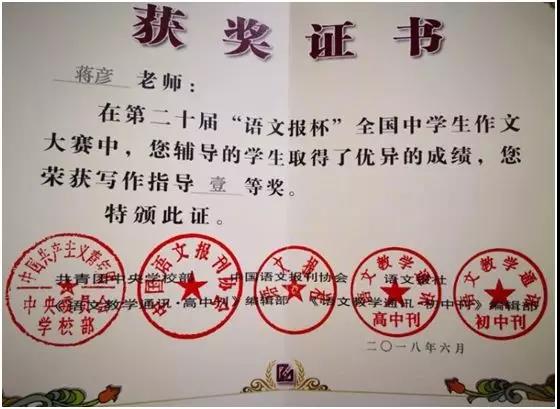 获奖证书
蒋彦 老师：
在第二十届“语文报杯”全国中学生作文
大赛中，您辅导的学生取得了优异的成绩，您
荣获写作指导 壹 等奖。
特颁此证。
共青团中央学校部 中国语文报刊协会 语文报社
《语文教学通讯·高中刊》编辑部 《语文教学通讯·初中刊》编辑部
中国共产主义青年团
中央委员会
学校部
中国语文报刊协会
语文报社
语文教学通讯
高中刊
语文教学通讯
初中刊
二〇一八年六月